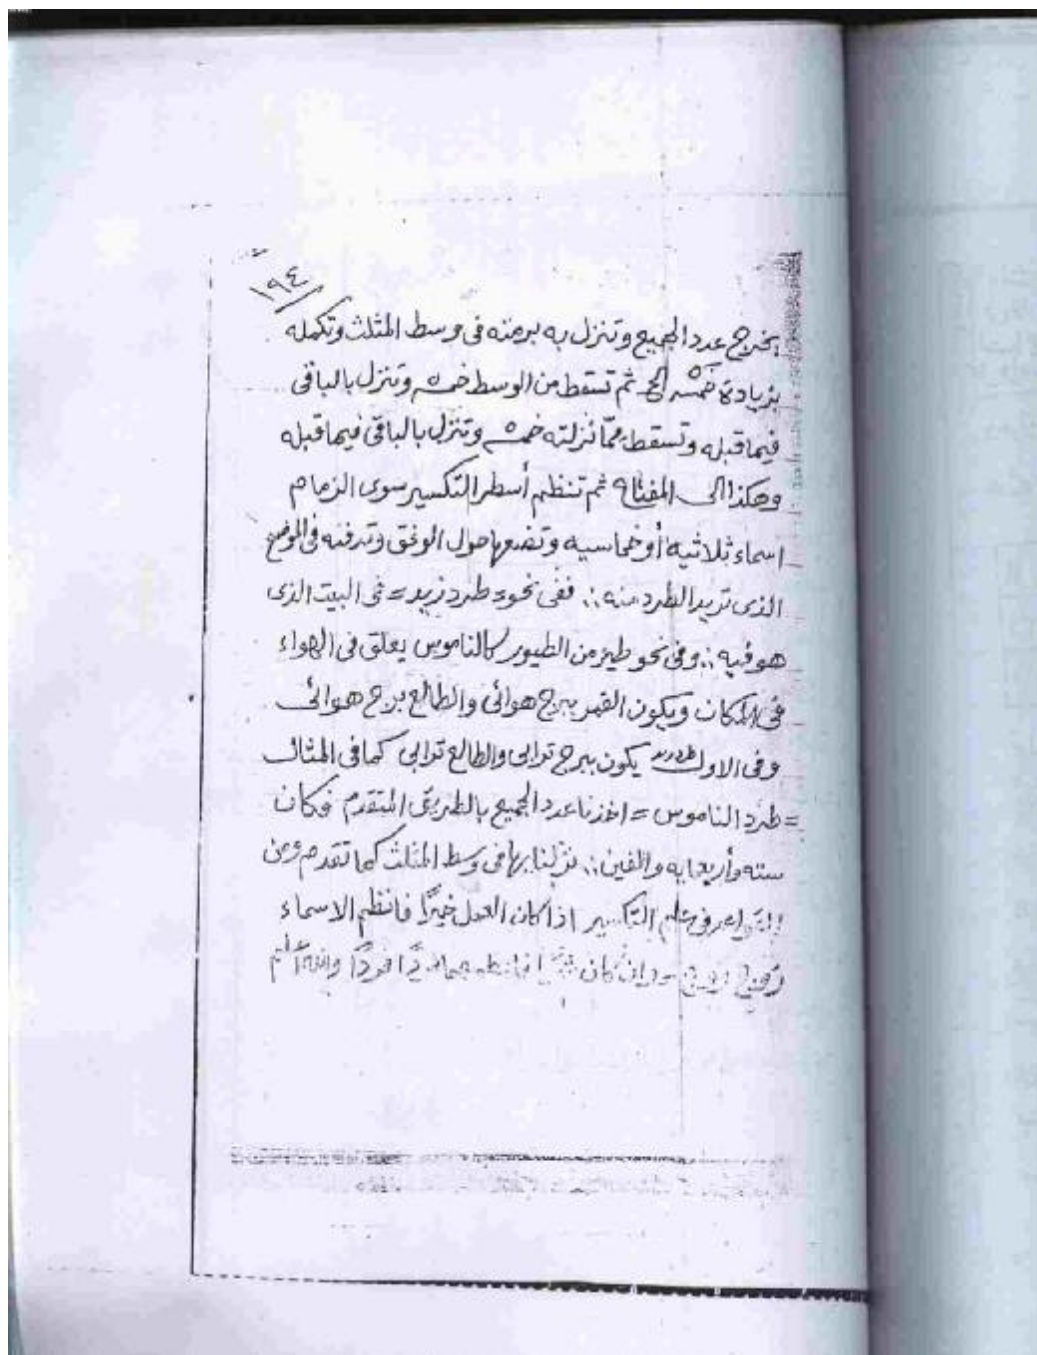 ١٩٤
يخرج عدد الجميع وتنزل به برمته فى وسط المثلث وتكمله
بزيادة خمسه الخ ثم تسقط من الوسط خمسه وتنزل بالباقى
فيما قبله وتسقط مما نزلته خمسه وتنزل بالباقى فيما قبله
وهكذا الى المفتاح ثم تنظم أسطر التكسير سوى الزمام
اسماء ثلاثيه أو خماسيه وتضعها حول الوفق وتدفنه فى الموضع
الذى تريد الطرد منه ؛ ففى نحو = طرد زيد = فى البيت الذى
هو فيه ؛ وفى نحو طير من الطيور كالناموس يعلق فى الهواء
فى المكان ويكون القمر ببرج هوائى والطالع برج هوائى
وفى الاول يكون ببرج ترابى والطالع ترابى كما فى المثال
= طرد الناموس = اخذنا عدد الجميع بالطريق المتقدم فكان
سته وأربعمايه والفين ؛ نزلنا بها فى وسط المثلث كما تقدم ومن
القواعد فى علم التكسير اذا كان العمل خيرًا فانظم الاسماء
وان كان فردًا والله أعلم